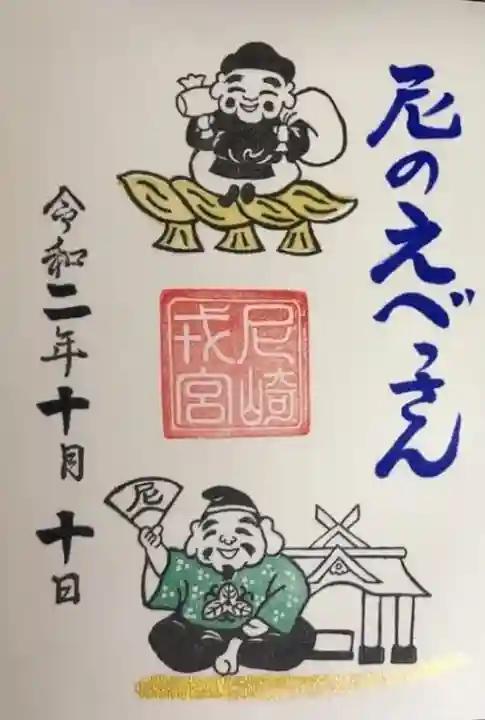 尼のえべっさん
尼崎
戎宮
尼
令和二年十月十日